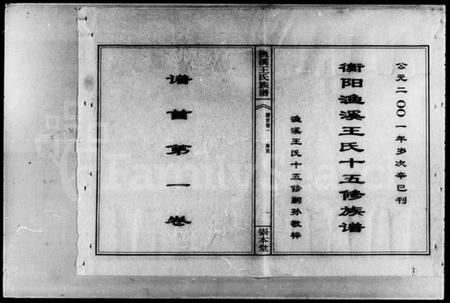 公元二〇〇一年岁次辛巳刊
衡阳渔溪王氏十五修族谱
渔溪王氏十五修嗣孙敬梓
渔溪王氏族谱
崇本堂
谱首第一卷